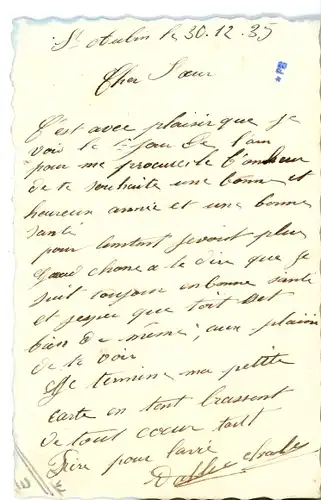 St Aubin le 30.12.35
*PB
Cher Sœur
C'est avec plaisir que je
voir le 1 jour de l'an
pour me procurer le bonheur
de te souhaite une bonne et
heureux année et une bonne
santé
pour l'instant je voit plus
chose a te dire que je
suit toujour en bonne santé
et jesper que toit set
bien de même, aux plaisir
de te voir
Je termine ma petite
carte en tent brassent
de tout cœur toit
Frère pour la vie